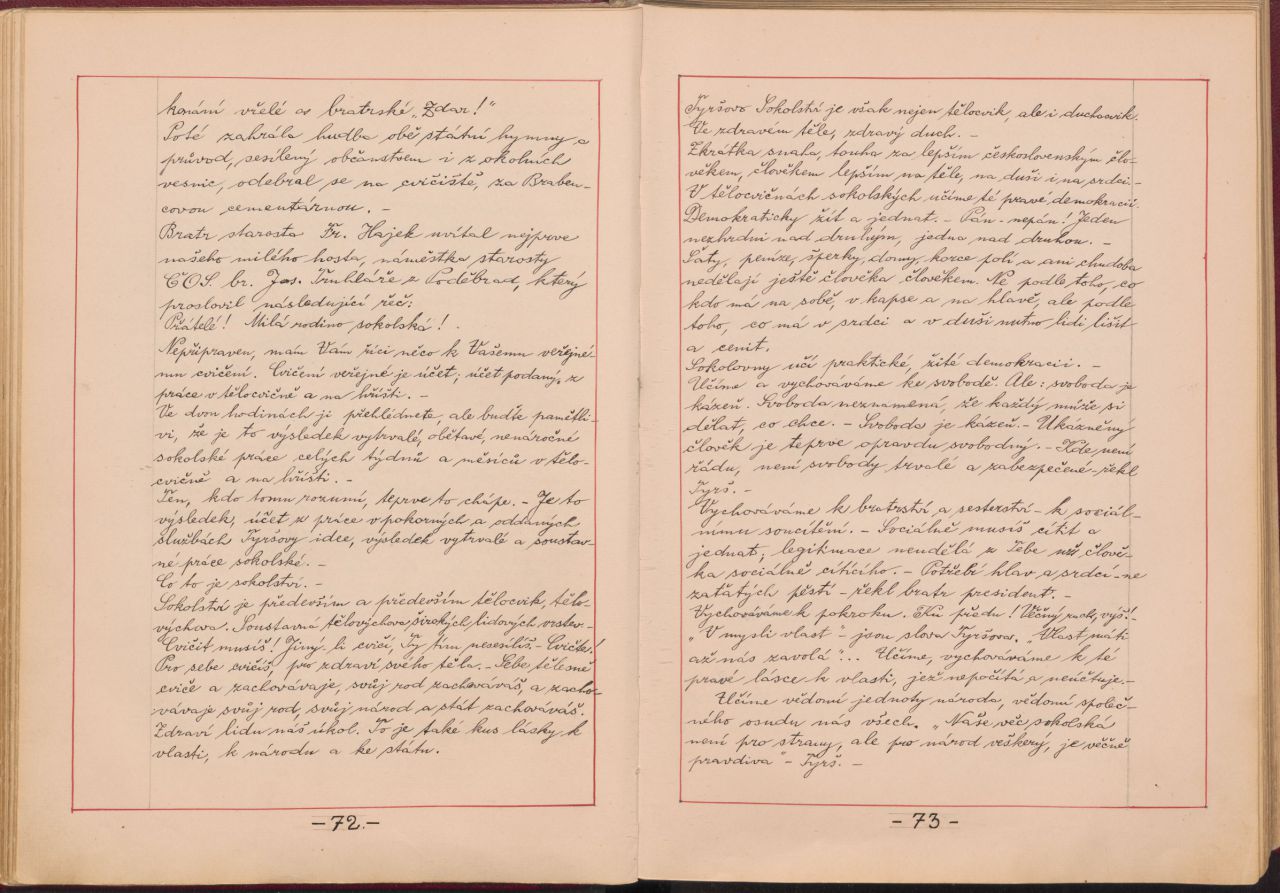 konání vřelé a bratrské „Zdar!"
Poté zahrála hudba obě státní hymny a
průvod, sesílený občanstvem i z okolních
vesnic, odebral se na cvičiště, za Braben-
covou cementárnou. –
Bratr starosta Fr. Hajek uvítal nejprve
našeho milého hosta, náměstka starosty
ČOS. br. Jos. Truhláře z Poděbrad, který
proslovil následující řeč:
Přátelé! Milá rodino sokolská!
Nepřipraven, mám Vám říci něco k Vašemu veřejné-
mu cvičení. Cvičení veřejné je účet; účet podaný z
práce v tělocvičně a na hřišti. –
Ve dvou hodinách ji přehlédnete, ale buďte pamětli-
vi, že je to výsledek vytrvalé, obětavé, nenáročné
sokolské práce celých týdnů a měsíců v tělo-
cvičně a na hřišti. –
Ten, kdo tomu rozumí, teprve to chápe. – Je to
výsledek, účet z práce v pokorných a oddaných
službách Tyršovy idee, výsledek vytrvalé a soustav-
né práce sokolské. –
Co to je sokolství. –
Sokolství je především a především tělocvik, tělo-
výchova. Soustavná tělovýchova širokých lidových vrstev. –
Cvičit musíš! Jiný-li cvičí, Ty tím nesesílíš. – Cvičte!
Pro sebe cvičíš, pro zdraví svého těla. – Sebe, tělesně
cviče a zachovávaje, svůj rod zachováváš, a zacho-
vávaje svůj rod, svůj národ a stát zachováváš.
Zdraví lidu náš úkol. To je také kus lásky k
vlasti, k národu a ke státu.
– 72. –
Tyršovo Sokolství je však nejen tělocvik, ale i duchocvik.
Ve zdravém těle, zdravý duch. –
Zkrátka snaha, touha za lepším československým člo-
věkem, člověkem lepším na těle, na duši i na srdci. –
V tělocvičnách sokolských učíme té pravé demokracii.
Demokraticky žít a jednat. – Pán - nepán! Jeden
nezhrdni nad druhým, jedna nad druhou. –
Šaty, peníze, šperky, domy, korce polí a ani chudoba
nedělají ještě člověka člověkem. Ne podle toho, co
kdo má na sobě, v kapse a na hlavě, ale podle
toho, co má v srdci a v duši nutno lidi lišit
a cenit.
Sokolovny učí praktické, žité demokracii. –
Učíme a vychováváme ke svobodě. Ale: svoboda je
kázeň. Svoboda neznamená, že každý může si
dělat, co chce. – Svoboda je kázeň. – Ukázněný
člověk je teprve opravdu svobodný. – Kde není
řádu, není svobody trvalé a zabezpečené – řekl
Tyrš. –
Vychováváme k bratrství a sesterství – k sociál-
nímu soucítění. – Sociálně musíš cítit a
jednat; legitimace neudělá z Tebe už člově-
ka sociálně cítícího. – Potřebí hlav a srdcí – ne
zaťatých pěstí – řekl bratr president. –
Vychováváme k pokroku. Ku předu! Věčný ruch, výš! –
„V mysli vlast – jsou slova Tyršova. „Vlast máti
až nás zavolá"... Učíme, vychováváme k té
pravé lásce k vlasti, jež nepočítá a neúčtuje. –
Učíme vědomí jednoty národa, vědomí společ-
ného osudu nás všech. „Naše věc sokolská
není pro strany, ale pro národ veškerý, je věčně
pravdiva" – Tyrš. –
– 73 –